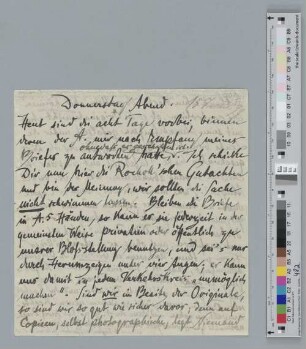 Donnerstag Abend.
Heut sind die acht Tage vorbei, binnen
deren der A. mir nach Empfang meines
Briefes zu antworten hatte. Ich schicke
Dir nun hier die schen Gutachten
und bin der Meinung, wir sollten die Sache
nicht schwimmen lassen. Bleiben die Briefe
in A.s Händen, so kann er sie jederzeit in der
gemeinsten Weise privatim oder öffentlich zu
unserer Bloßstellung benutzen, und sei's nur
durch Herumzeigen unter vier Augen; er kann
uns damit in jedem Verkehrskreis "unmöglich
machen". Sind wir im Besitz der Originale,
so sind wir so gut wie sicher davor; denn auf
Copieen, selbst photographische, legt Niemand